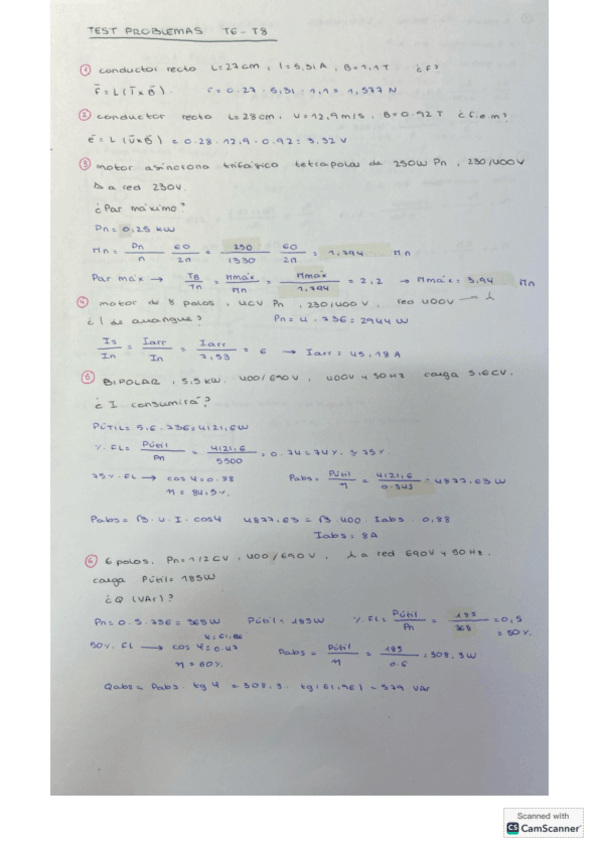 TEST PROBLEMAS T6 - T8
① conductor recto L=27cm, I=5,31A, B=1,1T ¿F?
F = L (I x B). F = 0.27 · 5,31 · 1,1 = 1,577 N
② conductor recto L=28cm, v=12,9m/s, B=0.92T ¿f.e.m?
E = L (v x B) = 0.28 · 12,9 · 0.92 = 3,32 V
③ motor asíncrono trifásico tetrapolar de 250W Pn, 230/400V
a red 230V.
¿Par máximo?
Pn = 0,25 kW
Mn = Pn/n 60/2π = 250/1330 60/2π = 1,794 Mn
Par máx → TB/Tn = Mmáx/Mn = Mmáx/1,794 = 2,2 → Mmáx = 3,94 Mn
④ motor de 8 polos, 4CV Pn, 230/400V, red 400V → Y
¿I de arranque? Pn = 4 · 736 = 2944W
Is/In = Iarr/In = Iarr/7,53 = 6 → Iarr = 45,18 A
⑤ BIPOLAR, 5,5kW, 400/690V, 400V y 50Hz carga 5.6CV.
¿I consumirá?
PÚTIL = 5.6 · 736 = 4121,6W
%FL = Pútil/Pn = 4121,6/5500 = 0.74 = 74% ≈ 75%
75% FL → cos φ = 0.88 Pabs = Pútil/η = 4121,6/0.845 = 4877,63W
η = 84,5%
Pabs = √3 · U · I · cosφ 4877,63 = √3 · 400 · Iabs · 0,88
Iabs = 8A
⑥ 6 polos, Pn = 1/2CV, 400/690V, Y a red 690V y 50Hz.
carga Pútil = 185W
¿Q (VAr)?
Pn = 0.5 · 736 = 368W Pútil = 185W %FL = Pútil/Pn = 185/368 = 0,5 = 50%
φ = 61,96
50% FL → cos φ = 0.47 Pabs = Pútil/η = 185/0.6 = 308,3W
η = 60%
Qabs = Pabs · tg φ = 308,3 · tg(61,96) = 579 VAr
Scanned with
CS CamScanner